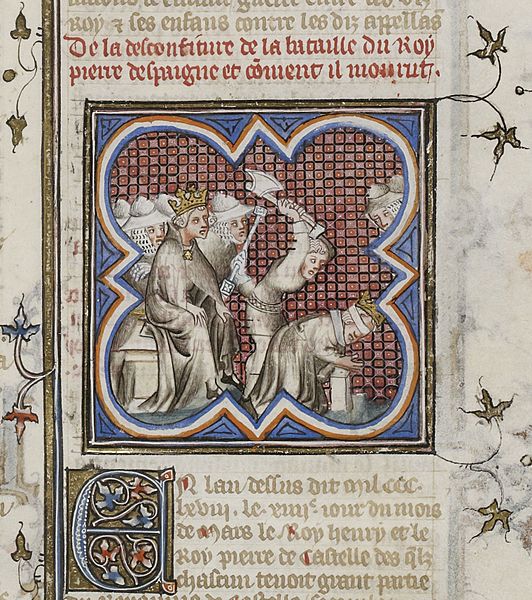 Roy & ses enfans contre les diz appellans
De la desconfiture de la bataille du Roy
pierre despaigne et coment il mourut.
En lan dessus dit mil CCC
lxviij. le xiiij.e iour du mois
de Mars le Roy henry et le
Roy pierre de Castelle des q̃lz
chascun tenoit grant partie